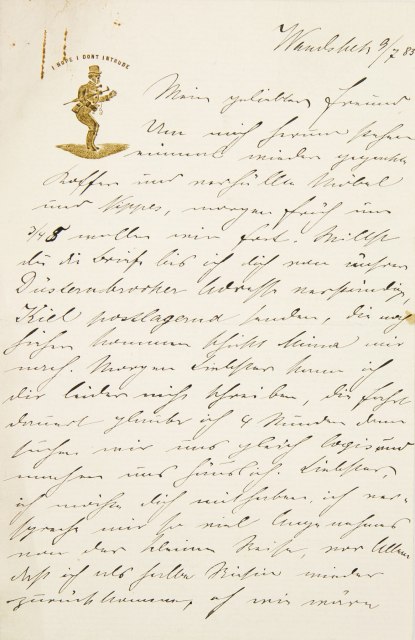 Wandsbek 9/7 85
I HOPE I DONT INTRUDE
Mein geliebter Freund
Um mich herum stehen
einmal wieder gepackte
Koffer und verhüllte Möbel
und Nippes, morgen früh um
8 wollen wir fort. Willst
du die Briefe bis ich dich von unsrer
Düsternbrooker Adresse verständige
Kiel postlagernd senden, die noch
hieher kommen schickt Minna mir
nach. Morgen Liebster kann ich
dir leider nicht schreiben, die Fahrt
dauert glaube ich 4 Stunden dann
suchen wir uns gleich Logis und
machen uns häuslich. Liebster,
ich möchte dich mithaben, ich ver-
spreche mir so viel Angenehmes
von der kleinen Reise, vor Allem
daß ich als halbe Riesin wieder
zurückkomme, wie wäre